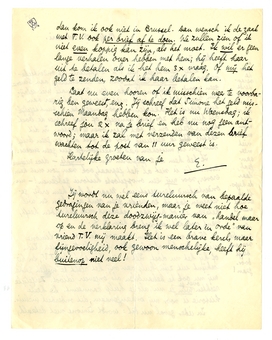 dan kom ik ook niet in Brussel. Dan wensch ik de zaak
met T.V. ook per brief af te doen. We zullen zien of ik
niet even koppig kan zijn, als het moet. Ik wil er geen
lange verhalen over hebben met hem; hij heeft mij
de details als ik het hem 3 x vraag, of mij het
geld te zenden, zoodat ik haar betalen kan.
Laat me even hooren of ik misschien wee te voorba-
rig ben geweest, zeg. Jij schreef dat Simone het geld mis-
schien Maandag hebben zou. Het is nu Woensdag; ik
schreef jou 2 x na je brief en heb nu nog geen ant-
woord; maar ik zal met verzenden van dezen brief
wachten tot de post van 11 uur geweest is.
Hartelijke groeten van je
E.
Jij houdt nu wel eens van bepaalde
gebreken van je vrienden, maar je weet niet hoe
deze manier van "handel maar
op en de verklaring breng ik wel later in orde" van
vriend T.V. mij maakt. Het is een brave kerel, maar
fijngevoeligheid, ook gewoon menschelijke heeft hij
buitenof niet veel!